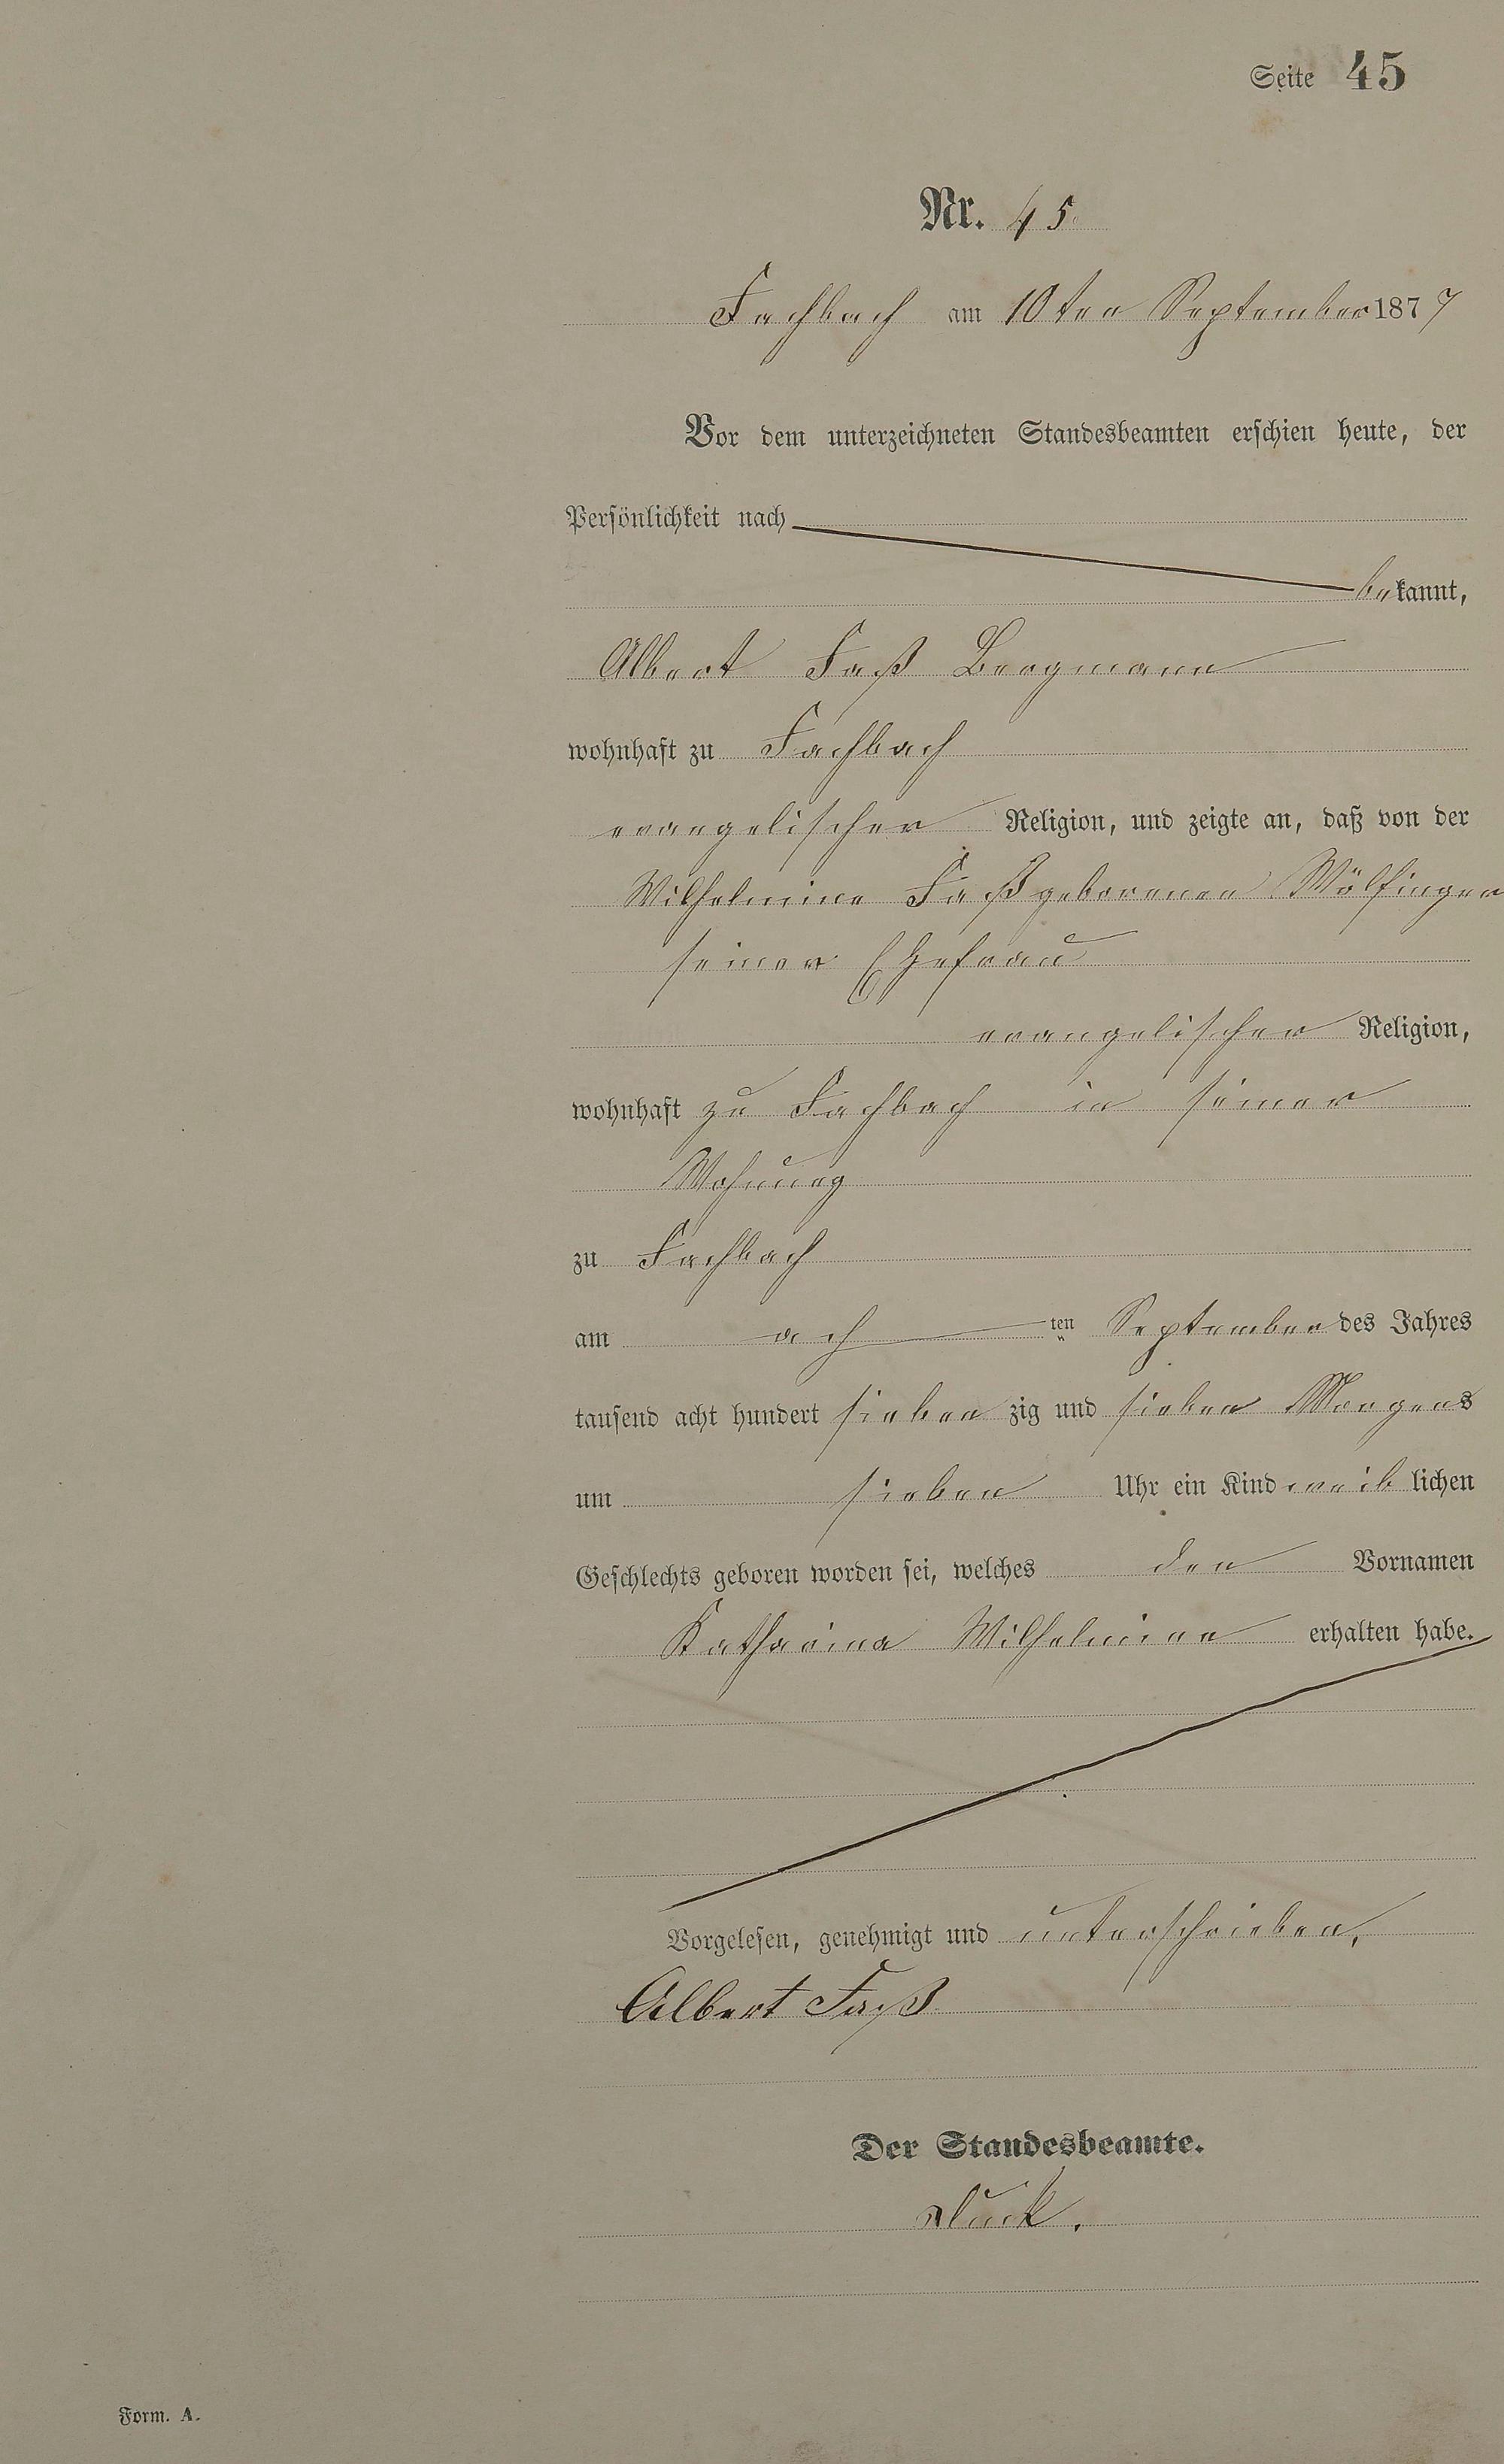 Seite 45
Nr. 45.
Fachbach am 10ten September 1877
Vor dem unterzeichneten Standesbeamten erschien heute, der
Persönlichkeit nach
bekannt,
Albert Faß Bergmann
wohnhaft zu Fachbach
evangelischer Religion, und zeigte an, daß von der
Wilhelmine Faß geborenen Wölfinger
seiner Ehefrau
evangelischer Religion,
wohnhaft zu Fachbach in seiner
Wohnung
zu Fachbach
am ach ten September des Jahres
tausend acht hundert sieben zig und sieben Morgens
um sieben Uhr ein Kind weib lichen
Geschlechts geboren worden sei, welches den Vornamen
Katharina Wilhelmine erhalten habe.
Vorgelesen, genehmigt und unterschrieben.
Albert Faß
Der Standesbeamte.
Form. A.